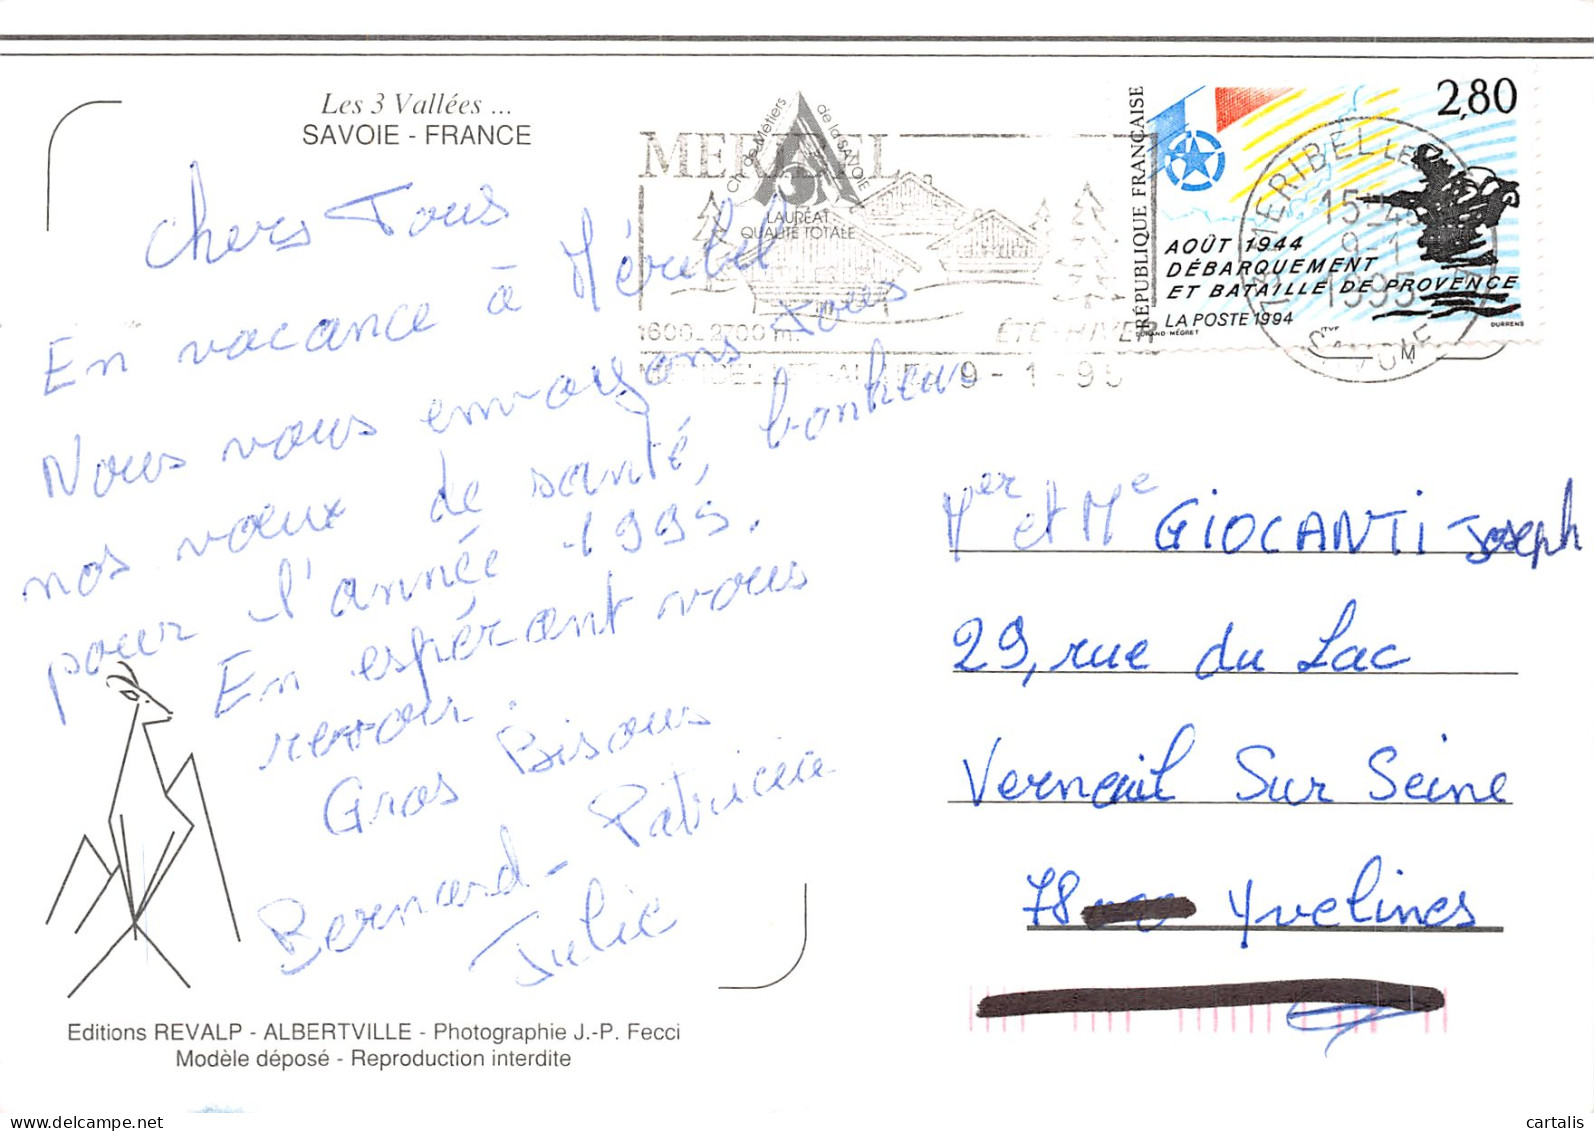 Les 3 Vallées ...
SAVOIE - FRANCE
Chers Tous
En vacance à Méribel
Nous vous envoyons tous
nos vœux de santé, bonheur
pour l'année 1995.
En espérant vous
revoir.
Gros Bisous
Bernard - Patricia
Julie
Editions REVALP - ALBERTVILLE - Photographie J.-P. Fecci
Modèle déposé - Reproduction interdite
MERIBEL
Ch. de Métiers de la SAVOIE
LAURÉAT
QUALITÉ TOTALE
1600-2700 m.
ÉTÉ-HIVER
9-1-95
RÉPUBLIQUE FRANÇAISE
2,80
AOÛT 1944
DÉBARQUEMENT
ET BATAILLE DE PROVENCE
LA POSTE 1994
DURAND-MÉGRET
ITVF
DURRENS
MERIBEL LES
15-45
9-1
1995
SAVOIE
M
Mer et Me GIOCANTI Joseph
29, rue du Lac
Verneuil Sur Seine
78 Yvelines
delcampe.net
cartalis